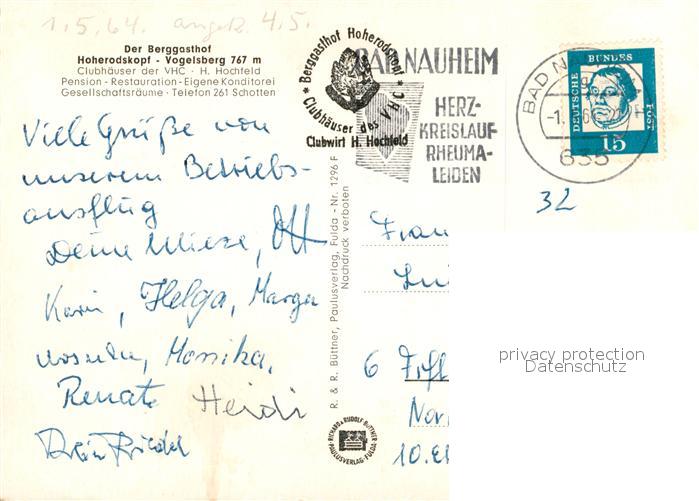 1.5.64. angek. 4.5.
Der Berggasthof
Hoherodskopf - Vogelsberg 767 m
Clubhäuser der VHC · H. Hochfeld
Pension - Restauration - Eigene Konditorei
Gesellschaftsräume · Telefon 261 Schotten
* Berggasthof Hoherodskopf *
Clubhäuser des VHC
Clubwirt H. Hochfeld
BAD NAUHEIM
HERZ-
KREISLAUF-
RHEUMA-
LEIDEN
BAD N
-1.
635
DEUTSCHE BUNDES POST
15
32
Viele Grüße von
unserem Betriebs-
ausflug
Deine Mieze, Ott
Karin, Helga, Marga
Monika,
Renate Heidi
R. & R. Büttner, Paulusverlag, Fulda - Nr. 1296 F
Nachdruck verboten
Frau
6
Nor
10.
RICHARD & RUDOLF BÜTTNER
PAULUSVERLAG · FULDA
privacy protection
Datenschutz